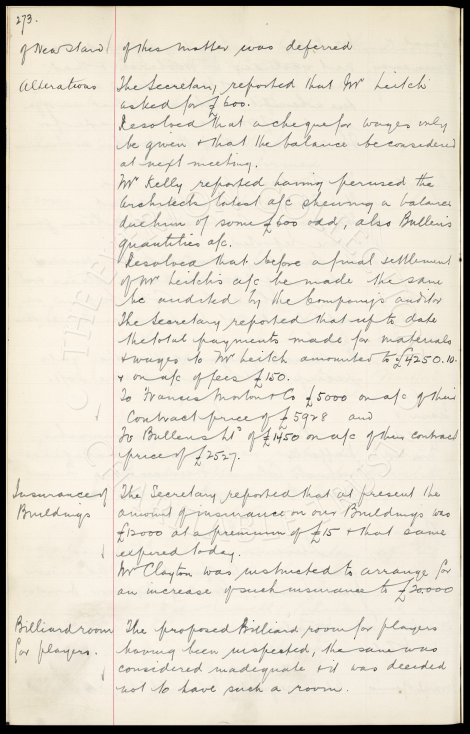 273.
of New Stand of this matter was deferred
Alterations The Secretary reported that Mr Leitch
asked for £600.
Resolved that a cheque for wages only
be given & that the balance be considered
at next meeting.
Mr Kelly reported having perused the
Architects latest a/c shewing a balance
due him of some £600 odd, also Bullens
quantities a/c.
Resolved that before a final settlement
of Mr Leitch's a/c be made the same
be audited by the Company's auditor
The Secretary reported that up to date
the total payments made for materials
& wages to Mr Leitch amounted to £4250.10.
& on a/c of fees £150.
To Francis Morton & Co £5000 on a/c of their
Contract price of £5928 and
To Bullens Ltd of £1450 on a/c of their contract
price of £2527.
Insurance of The Secretary reported that at present the
Buildings amount of insurance on our Buildings was
£12000 at a premium of £15 & that same
expired today.
Mr Clayton was instructed to arrange for
an increase of such insurance to £20,000
Billiard room The proposed Billiard room for players
for players. having been inspected, the same was
considered inadequate & it was decided
not to have such a room.